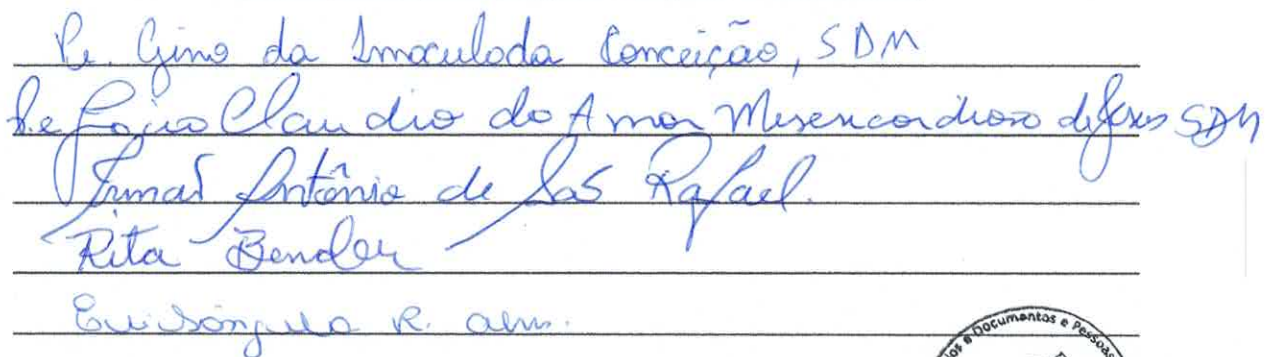 Pe. Gino da Imaculada Conceição, SDM
Pe Claudio do Amor Misericordioso de Jesus SDM
Irmão Antônio de São Rafael.
Rita Bender
R.
os e Documentos e Pessoas